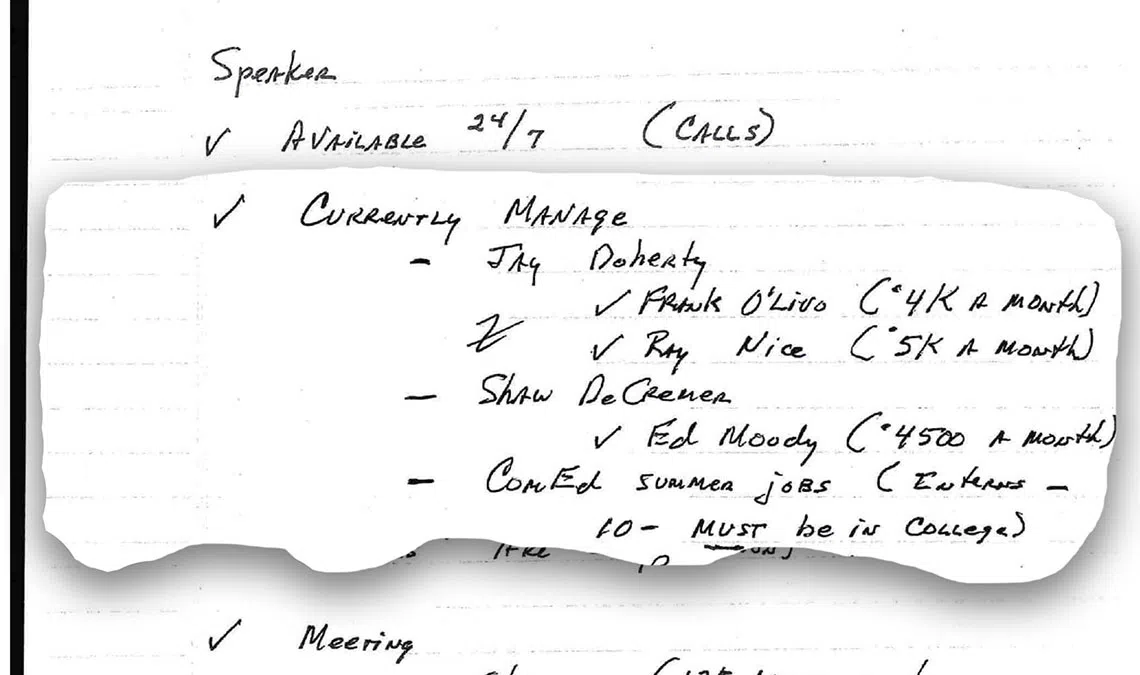 Speaker
✓ AVAILABLE 24/7 (CALLS)
✓ CURRENTLY MANAGE
- JAY Doherty
✓ FRANK O'LIVO ($4K A MONTH)
✓ RAY NICE ($5K A MONTH)
- SHAW DeCREMER
✓ Ed Moody ($4500 A MONTH)
- ComEd SUMMER jOBS (INTERNS -
10 - MUST be in COLLEGE)
✓ MEETING